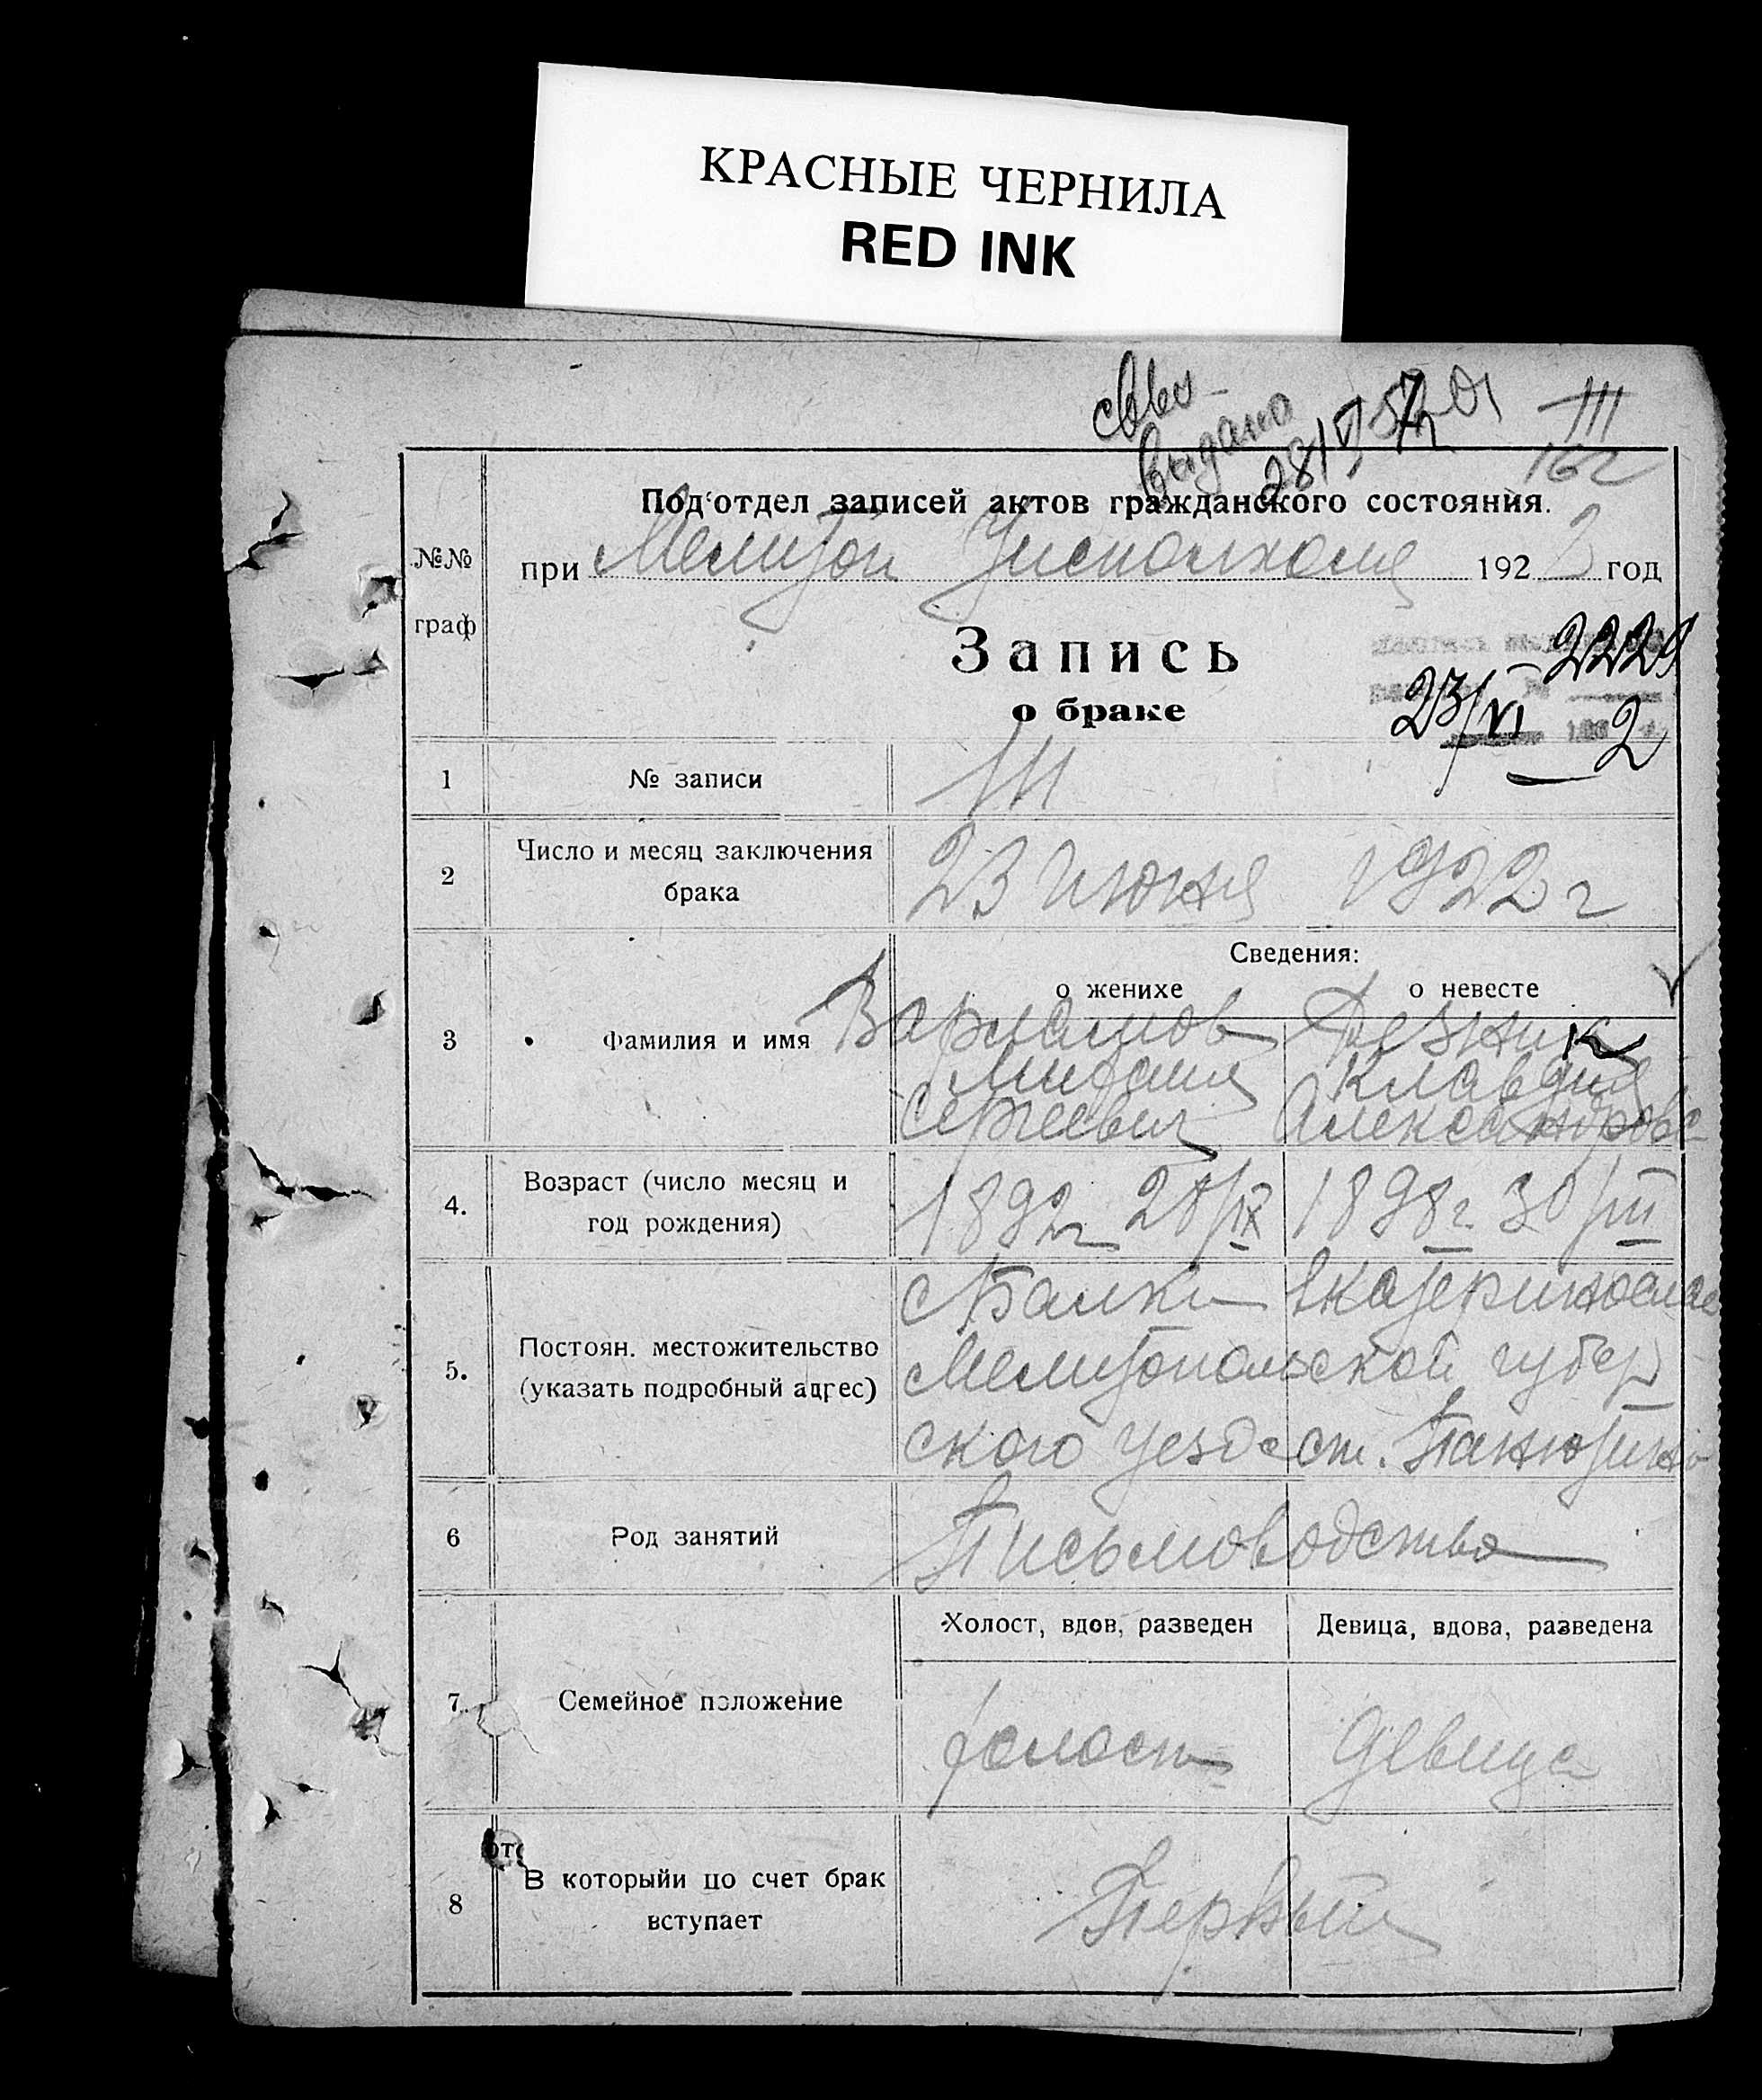 КРАСНЫЕ ЧЕРНИЛА
RED INK
выдано
III
162
Под‘отдел записей актов гражданского состояния.
№№
граф
при Мелитоп Уисполкоме 1922 год
Запись
о браке
2229
23/VI 2
1 № записи 111
2 Число и месяц заключения
брака
23 июня 1922 г
Сведения:
о женихе о невесте
3 Фамилия и имя Варламов Резник
Михаил Клавдия
Сергеевич Александровна
4. Возраст (число месяц и
год рождения)
1892 г 28/IX 1898 г. 30/III
5. Постоян. местожительство
(указать подробный адрес)
с Балки Екатеринослав
Мелитопольской губер
ского уезда ст. Панютино
6 Род занятий Письмоводство
Холост, вдов, разведен Девица, вдова, разведена
7. Семейное положение холост девица
8 В которыйи по счет брак
вступает
Первый